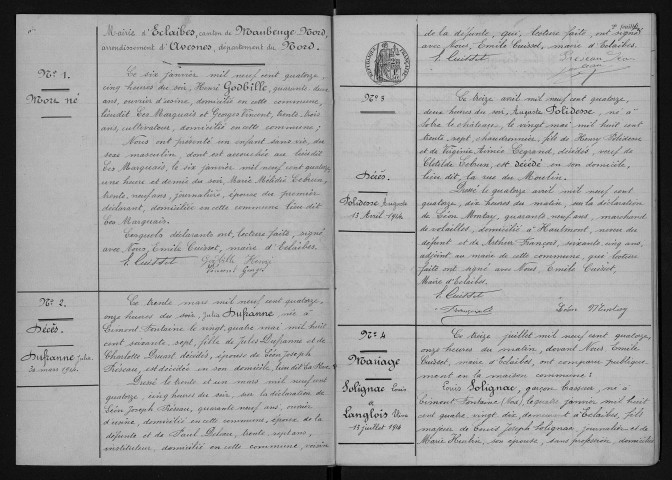 Mairie d'Eclaibes, canton de Maubeuge Nord,
arrondissement d'Avesnes, département du Nord.
N° 1.
Mort né
Le six janvier mil neuf cent quatorze
cinq heures du soir, Henri Godbille, quarante deux
ans, ouvrier d'usine, domicilié en cette commune,
lieudit Les Marquais et Georges Vincent, trente trois
ans, cultivateur, domicilié en cette commune;
Nous ont présenté un enfant sans vie, du
sexe masculin, dont est accouchée au lieudit
Les Marquais, le six janvier mil neuf cent quatorze
une heure et demie du soir, Marie Lebrun,
trente neuf ans, journalière, épouse du premier
déclarant, domiciliée en cette commune lieu dit
Les Marquais.
Lesquels déclarants ont, lecture faite, signé
avec Nous, Emile Cuisset, maire d'Eclaibes.
E. Cuisset Godbille Henri
Vincent Georges
N° 2.
Décès.
Dufranne Julia
30 mars 1914.
Le trente mars mil neuf cent quatorze,
onze heures du soir, Julia Dufranne née à
Limont Fontaine le vingt quatre mai mil huit
cent soixante sept, fille de Jules Dufranne et de
Charlotte Druart décédés, épouse de Léon Joseph
Préseau, est décédée en son domicile, lieu dit La Rue
Dressé le trente et un mars mil neuf cent
quatorze, cinq heures du soir, sur la déclaration de
Léon Joseph Préseau, quarante neuf ans, ouvrier
d'usine, domicilié en cette commune, époux de la
défunte et de Paul Delvau, trente sept ans,
instituteur, domicilié en cette commune, voisin
de la défunte, qui, lecture faite, ont signé
avec Nous, Emile Cuisset, maire d'Eclaibes.
E. Cuisset Préseau Léon
N° 3
Décès.
Polidesse Auguste
13 Avril 1914
Le treize avril mil neuf cent quatorze,
deux heures du soir, Auguste Polidesse, né à
Solre le château, le vingt mai mil huit cent
trente sept, chaudronnier, fils de Henry Polidesse
et de Virginie Aimée Legrand, décédés, veuf de
Clotilde Lebrun, est décédé en son domicile,
lieu dit, la rue du Moulin.
Dressé le quatorze avril mil neuf cent
quatorze, dix heures du matin, sur la déclaration
de Léon Montay, quarante neuf ans, marchand
de volailles, domicilié à Hautmont, neveu du
défunt et de Arthur François, soixante cinq ans,
adjoint au maire de cette commune, qui lecture
faite ont signé avec Nous Emile Cuisset,
Maire d'Eclaibes.
E. Cuisset
François A. Léon Montay
N° 4
Mariage
Solignac Louis
&
Langlois
13 juillet 1914
Le treize juillet mil neuf cent quatorze,
onze heures du matin, devant Nous Emile
Cuisset, maire d'Eclaibes, ont comparu publique-
ment en la maison commune:
Louis Solignac, garçon brasseur, né à
Limont Fontaine (Nord), le janvier mil huit
cent quatre vingt dix demeurant à Eclaibes, fils
majeur de Louis Joseph Solignac, journalier et de
Marie son épouse, sans profession, domiciliés